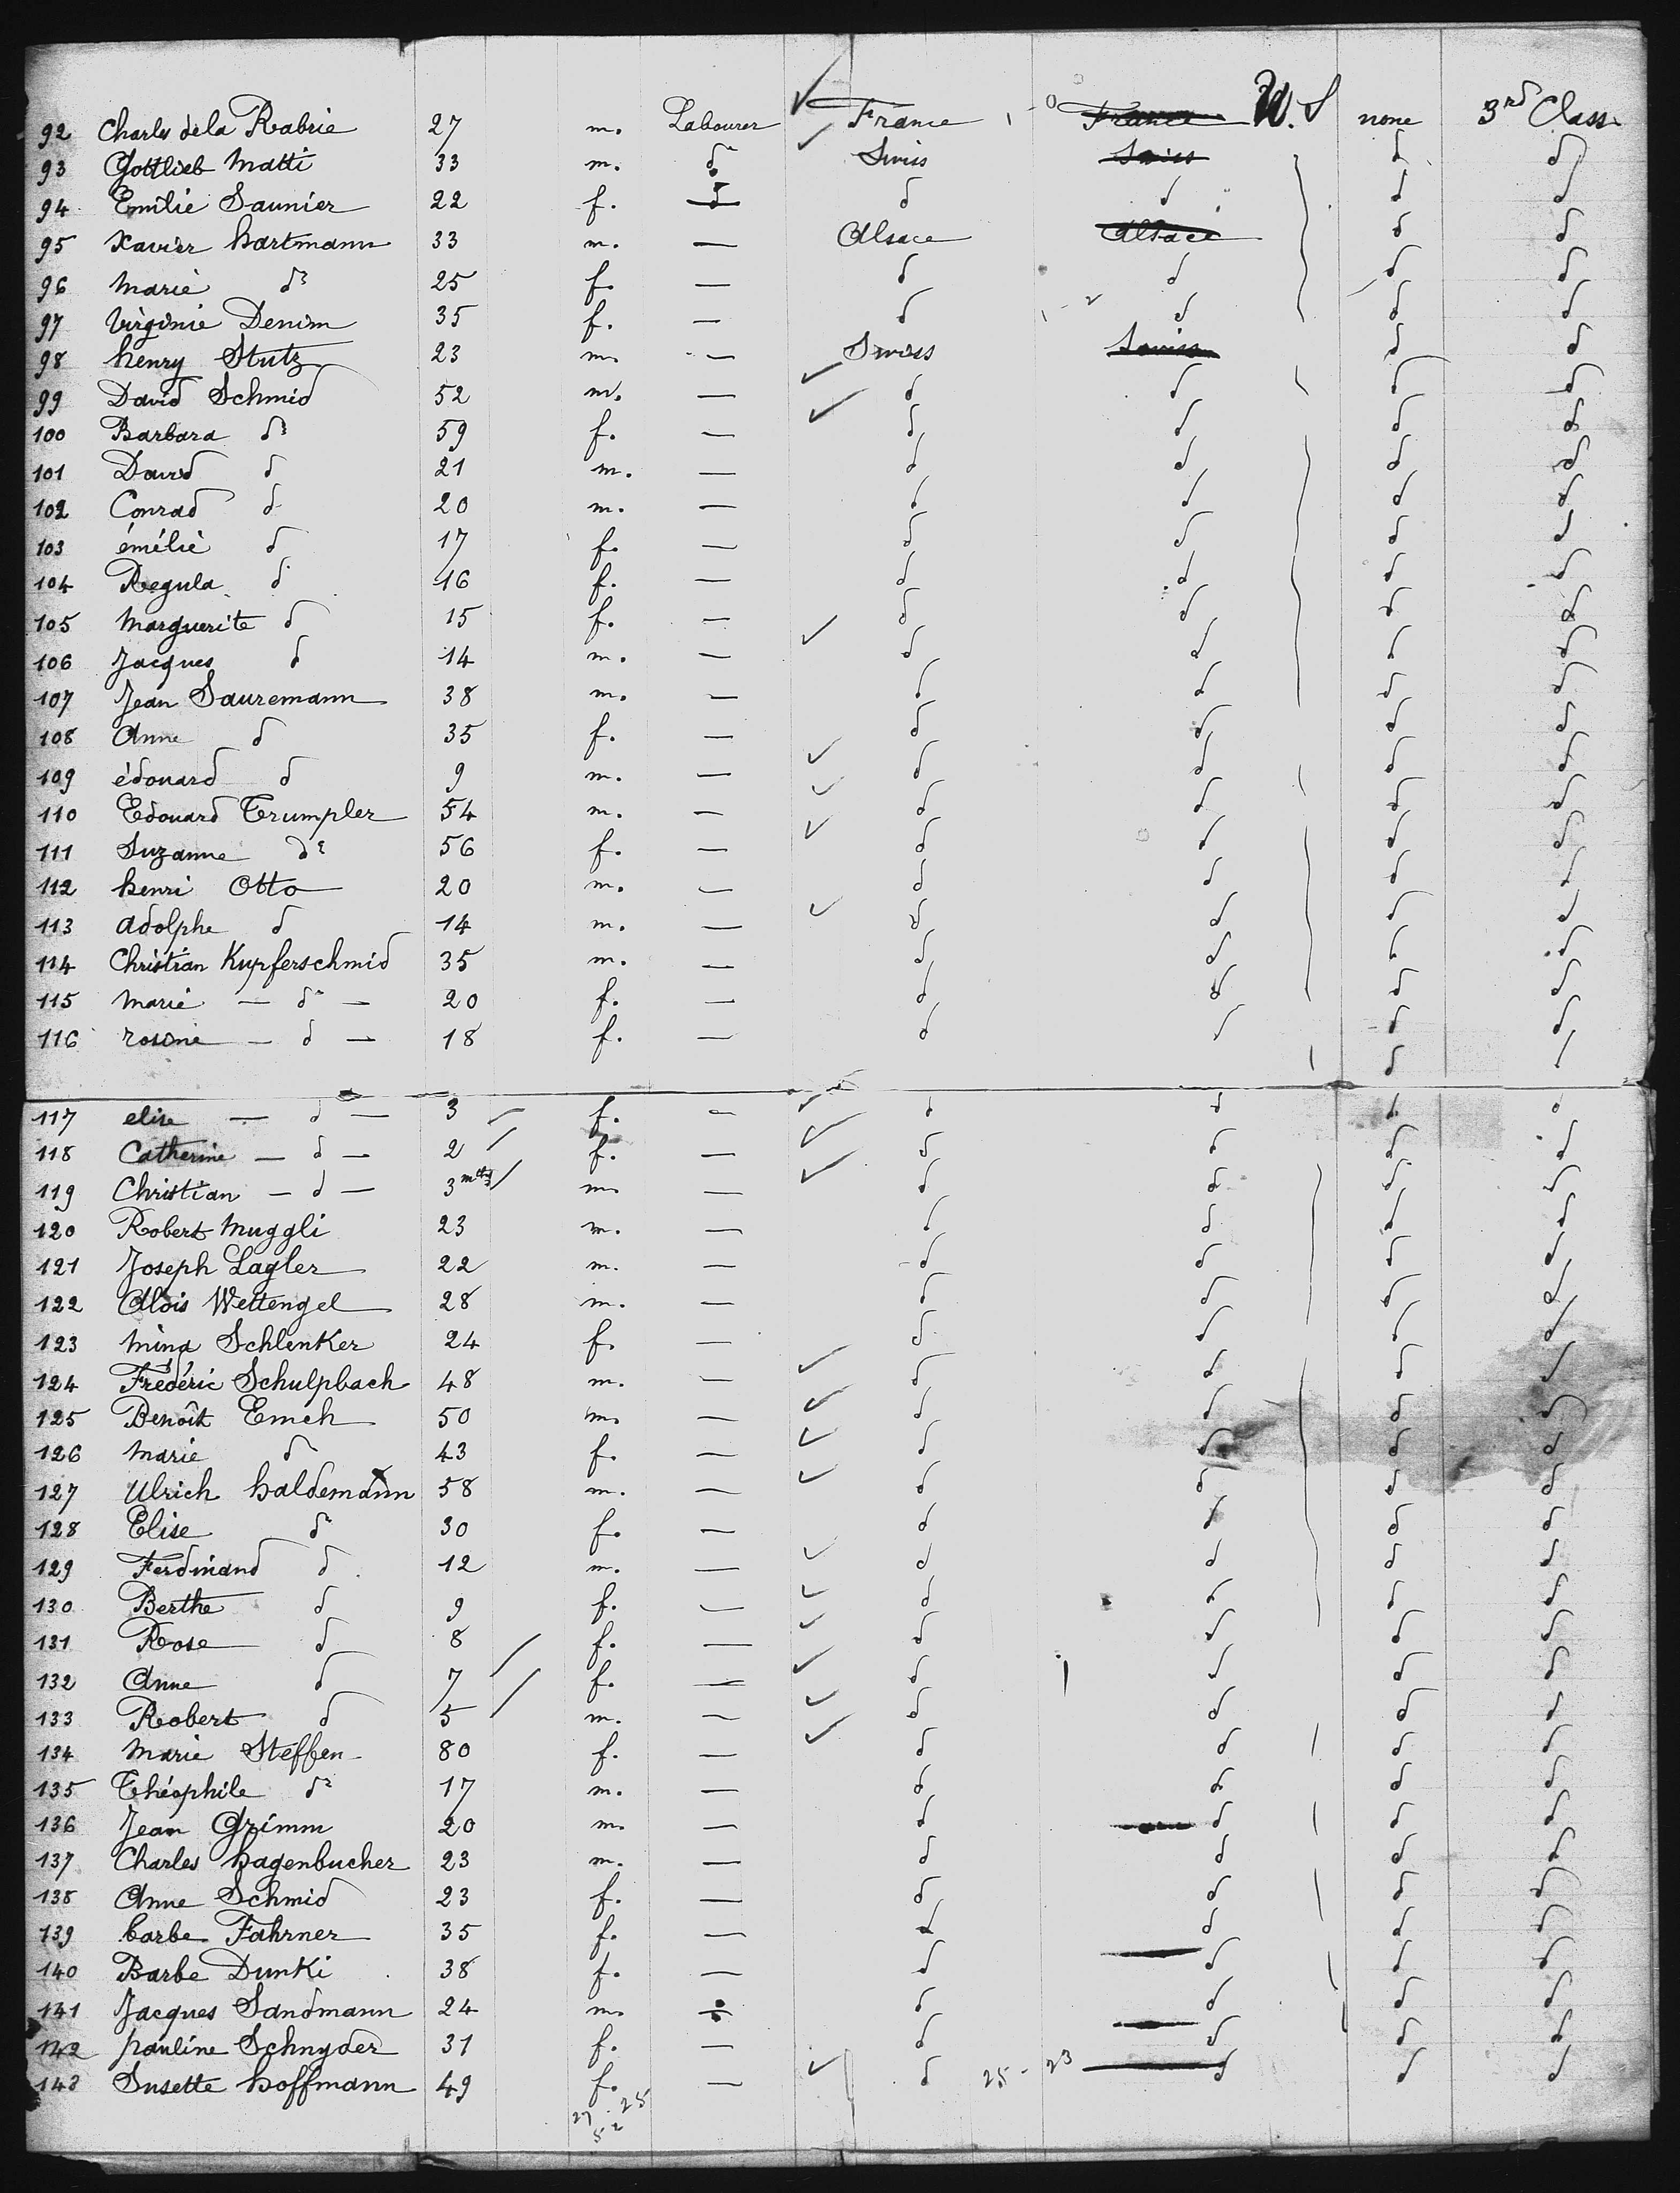 92 Charles de la Rabrie 27 m. Labourer France France U.S none 3rd Class
93 Gottlieb Matti 33 m. do Swiss Swiss d d
94 Emilie Saunier 22 f. d d d d d
95 Xavier hartmann 33 m. — Alsace Alsace d d
96 Marie do 25 f. — d d d d
97 Virginie Denim 35 f. — d d d d
98 henry Stutz 23 m. — Swiss Swiss d d
99 David Schmid 52 m. — d d d d
100 Barbara do 59 f. — d d d d
101 David d 21 m. — d d d d
102 Conrad d 20 m. — d d d d
103 émélie d 17 f. — d d d d
104 Regula d 16 f. — d d d d
105 Marguerite d 15 f. — d d d d
106 Jacques d 14 m. — d d d d
107 Jean Sauremann 38 m. — d d d d
108 Anne d 35 f. — d d d d
109 édouard d 9 m. — d d d d
110 Edouard Trumpler 54 m. — d d d d
111 Suzanne do 56 f. — d d d d
112 henri Otto 20 m. — d d d d
113 adolphe d 14 m. — d d d d
114 Christian Kupferschmid 35 m. — d d d d
115 Marie — do — 20 f. — d d d d
116 rosine — d — 18 f. — d d d d
d
117 elise — d — 3 f. — d d d d
118 Catherine — d — 2 f. — d d d d
119 Christian — d — 3 mths m. — d d d d
120 Robert Muggli 23 m. — d d d d
121 Joseph Lagler 22 m. — d d d d
122 Aloïs Wettengel 28 m. — d d d d
123 Mina Schlenker 24 f. — d d d d
124 Frédéric Schulpbach 48 m. — d d d d
125 Benoît Emch 50 m. — d d d d
126 Marie d 43 f. — d d d d
127 Ulrich haldemann 58 m. — d d d d
128 Elise do 30 f. — d d d d
129 Ferdinand d 12 m. — d d d d
130 Berthe d 9 f. — d d d d
131 Rose d 8 f. — d d d d
132 Anne d 7 f. — d d d d
133 Robert d 5 m. — d d d d
134 Marie Steffen 80 f. — d d d d
135 Théophile do 17 m. — d d d d
136 Jean Grimm 20 m. — d d d d
137 Charles hagenbucher 23 m. — d d d d
138 Anne Schmid 23 f. — d d d d
139 barbe Fahrner 35 f. — d d d d
140 Barbe Dunki 38 f. — d d d d
141 Jacques Sandmann 24 m. — d d d d
142 pauline Schnyder 31 f. — d d d d
143 Susette hoffmann 49 f. — d 25 - 23 d d d
27 25
52